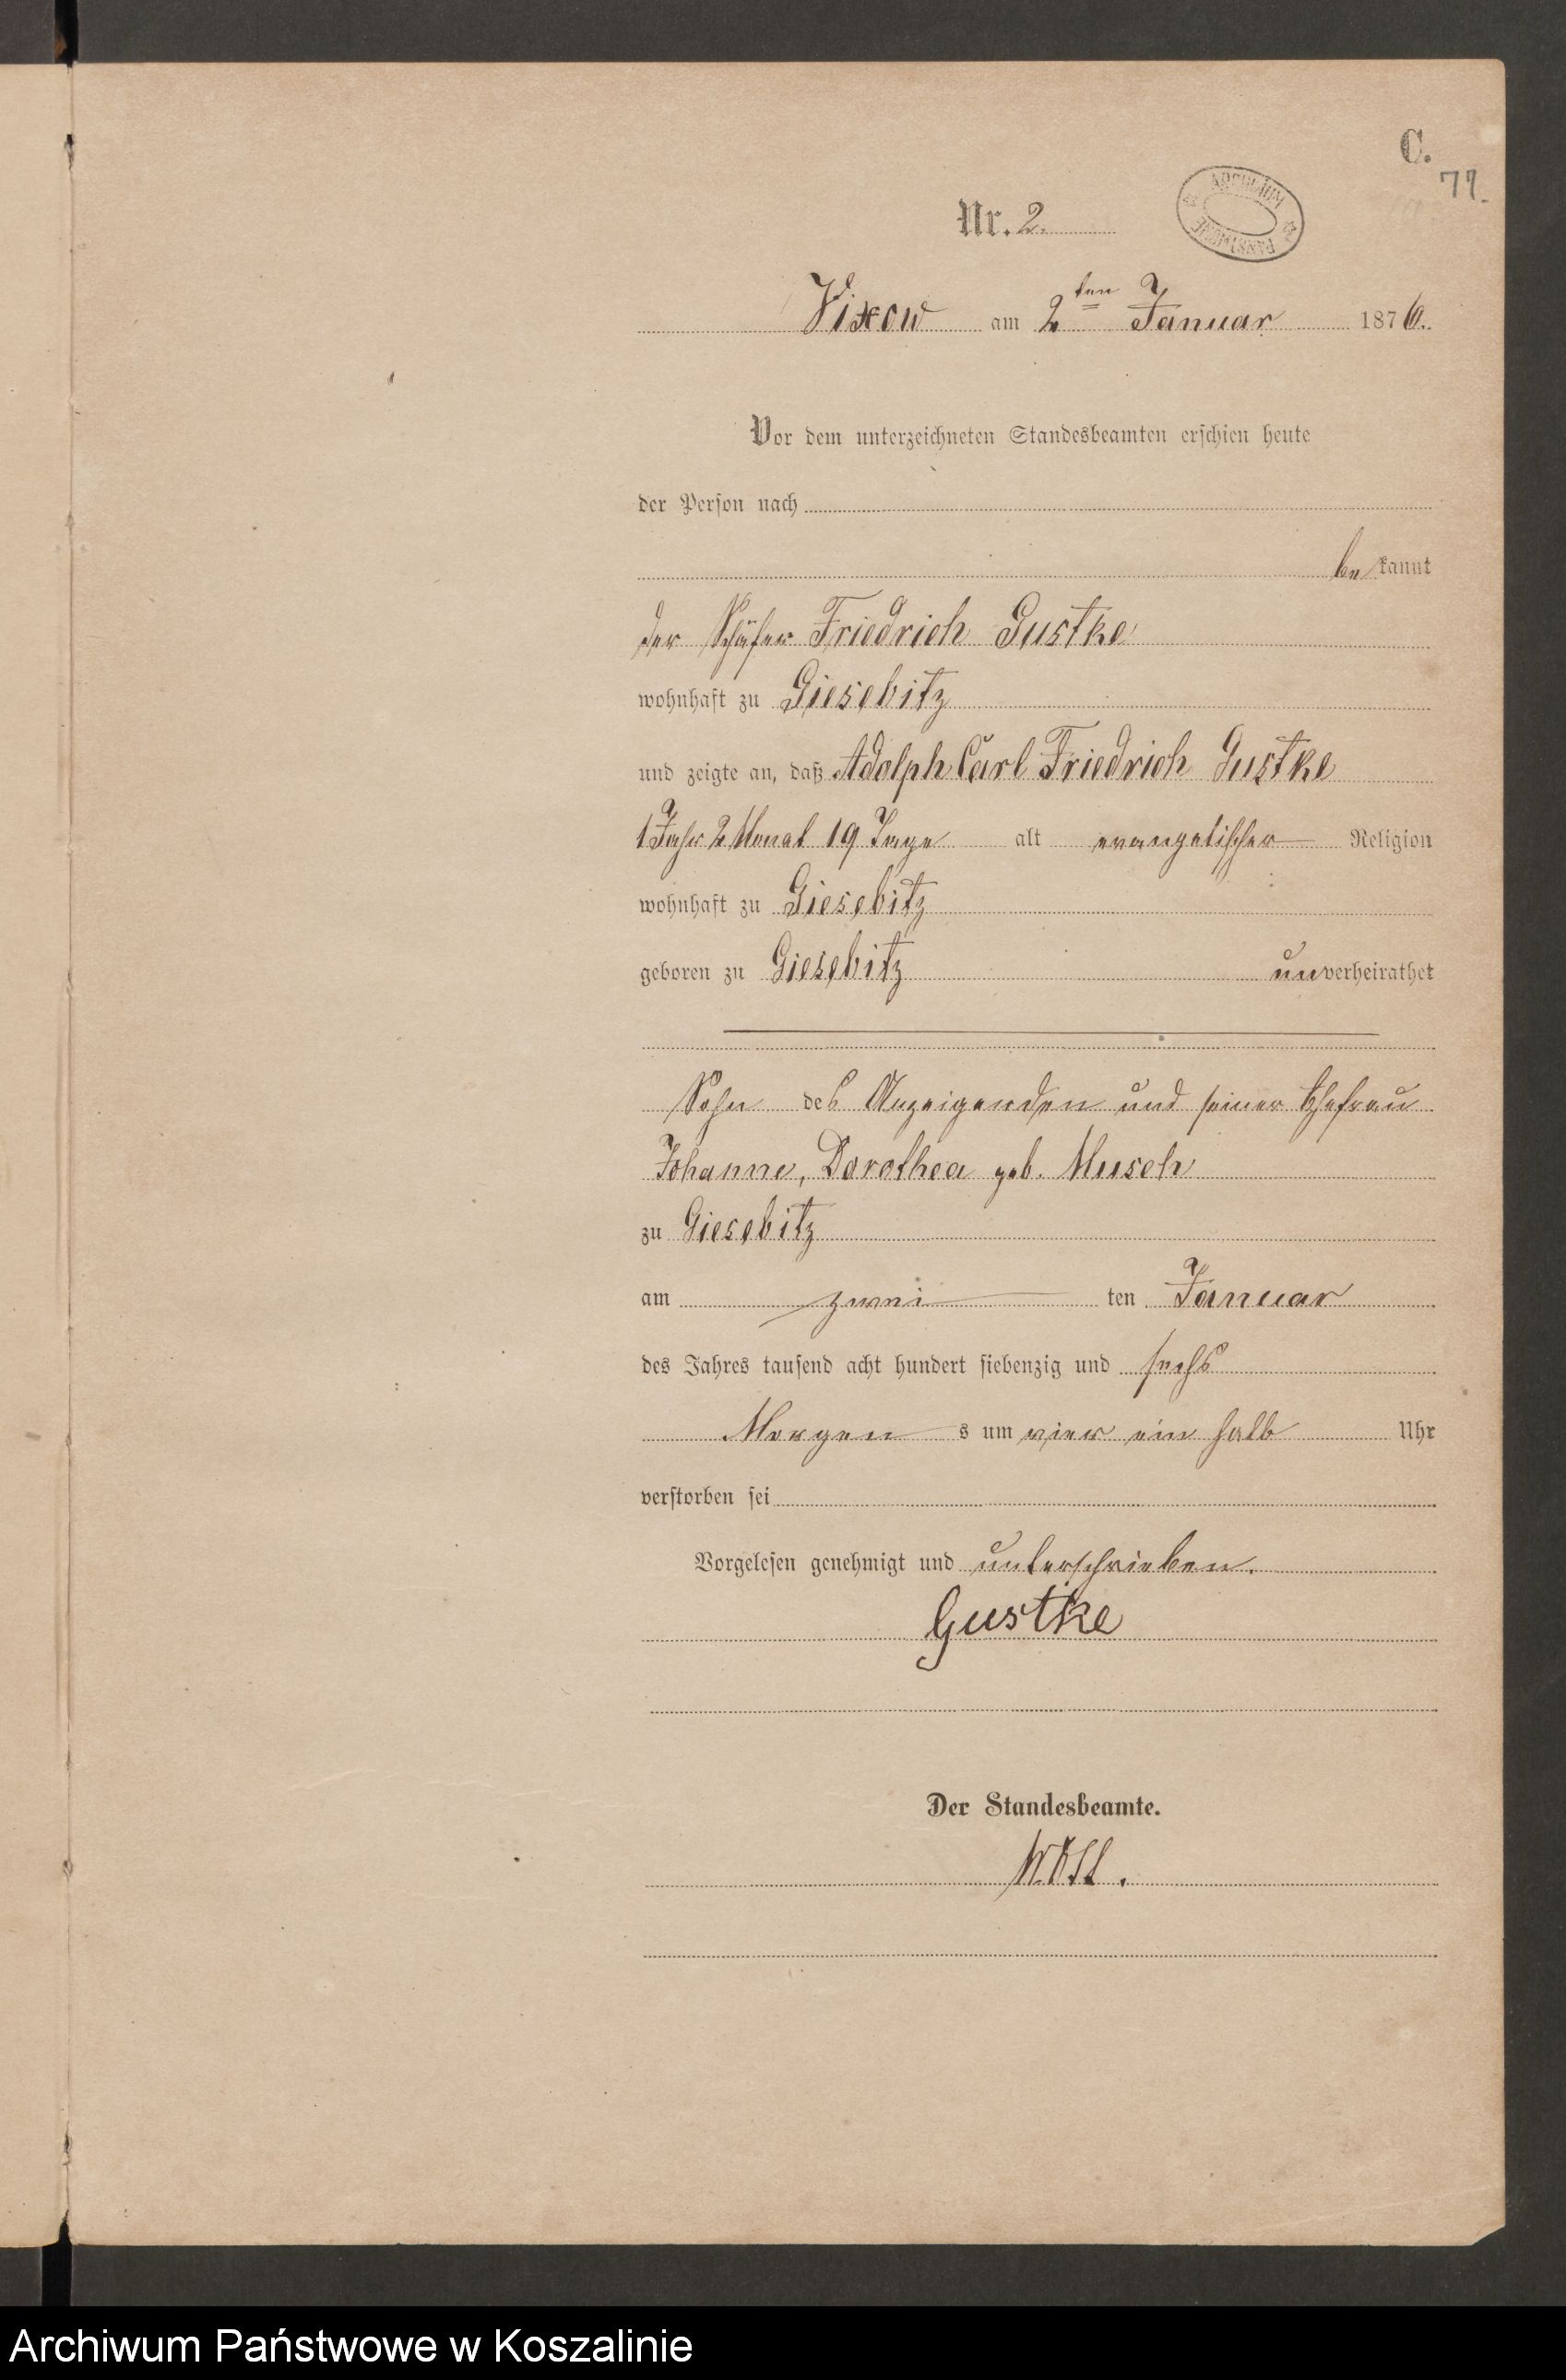 C.
77.
Nr. 2.
ARCHIWUM PAŃSTWOWE
Vixow am 2ten Januar 1876.
Vor dem unterzeichneten Standesbeamten erschien heute
der Person nach
be kannt
der Schäfer Friedrich Gustke
wohnhaft zu Giesebitz
und zeigte an, daß Adolph Carl Friedrich Gustke
1 Jahr 2 Monat 19 Tage alt evangelischer Religion
wohnhaft zu Giesebitz
geboren zu Giesebitz unverheirathet
Sohn des Anzeigenden und seiner Ehefrau
Johanne, Dorothea geb. Musch
zu Giesebitz
am zwei ten Januar
des Jahres tausend acht hundert siebenzig und sechs
Morgen s um vier ein halb Uhr
verstorben sei
Vorgelesen genehmigt und unterschrieben.
Gustke
Der Standesbeamte.
Archiwum Państwowe w Koszalinie